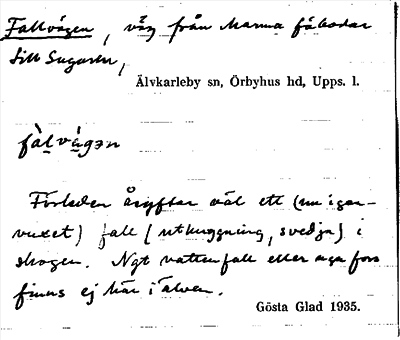 Fallvägen, väg från Marma fäbodar
till Sugaren,
Älvkarleby sn, Örbyhus hd, Upps. l.
fàlvä̀gən
Förleden åsyftar väl ett (nu igen-
vuxet) fall (uthuggning, svedja) i
skogen. Ngt vattenfall eller ngn fors
finns ej här i älven.
Gösta Glad 1935.